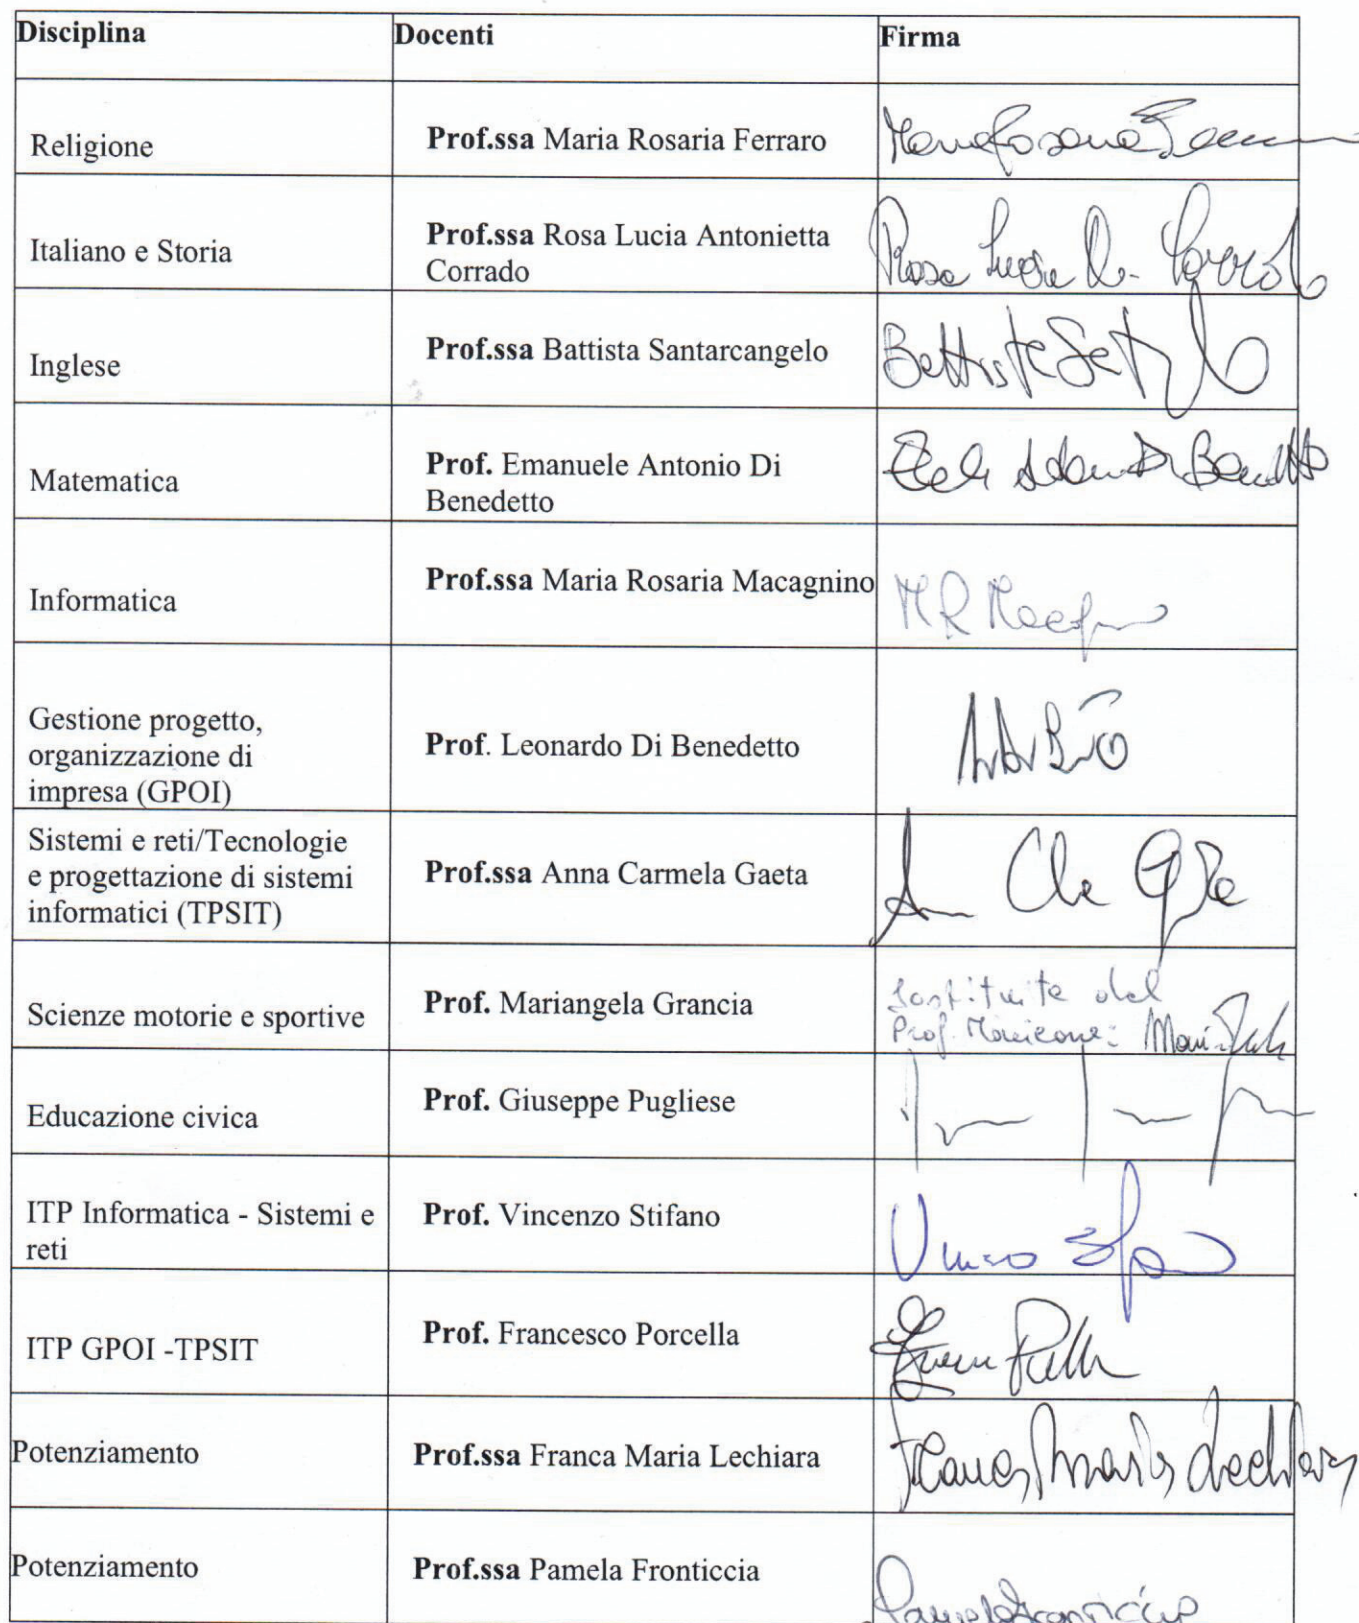 Disciplina Docenti Firma
Religione Prof.ssa Maria Rosaria Ferraro
Italiano e Storia Prof.ssa Rosa Lucia Antonietta
Corrado
Rosa Lucia
Inglese Prof.ssa Battista Santarcangelo
Matematica Prof. Emanuele Antonio Di
Benedetto
Informatica Prof.ssa Maria Rosaria Macagnino
Gestione progetto,
organizzazione di
impresa (GPOI)
Prof. Leonardo Di Benedetto
Sistemi e reti/Tecnologie
e progettazione di sistemi
informatici (TPSIT)
Prof.ssa Anna Carmela Gaeta
Scienze motorie e sportive Prof. Mariangela Grancia
sostituite dal
Prof.
Educazione civica Prof. Giuseppe Pugliese
ITP Informatica - Sistemi e
reti
Prof. Vincenzo Stifano
ITP GPOI -TPSIT Prof. Francesco Porcella
Potenziamento Prof.ssa Franca Maria Lechiara
Franca Maria Lechiara
Potenziamento Prof.ssa Pamela Fronticcia